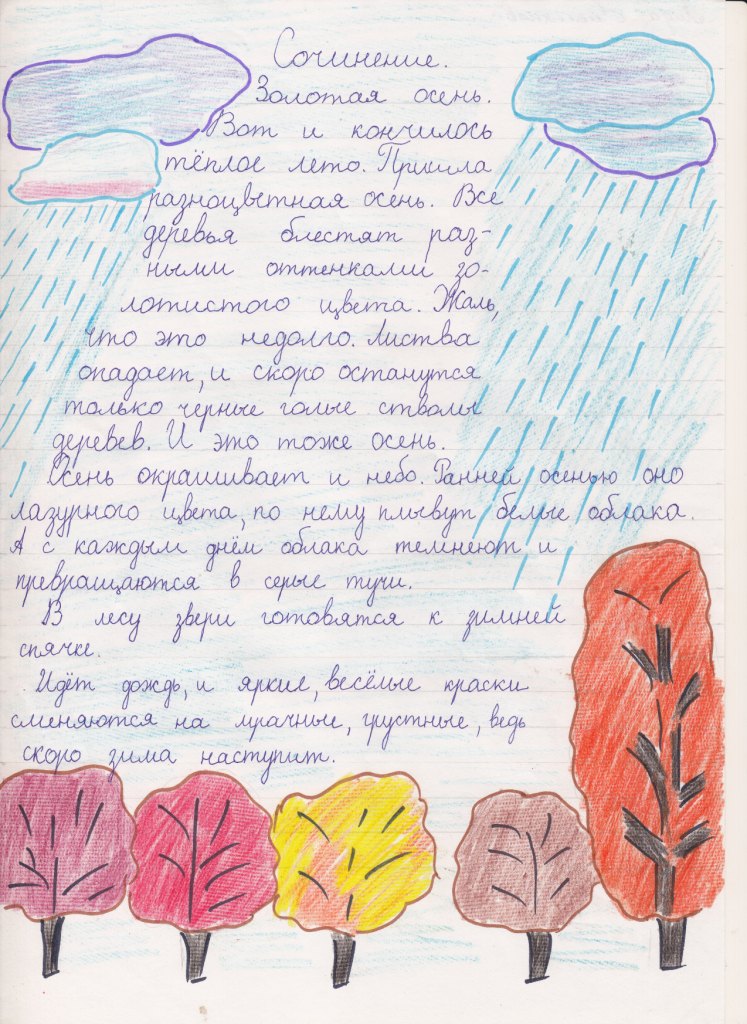 Сочинение.
Золотая осень.
Вот и кончилось
тёплое лето. Пришла
разноцветная осень. Все
деревья блестят раз-
ными оттенками зо-
лотистого цвета. Жаль,
что это недолго. Листва
опадает, и скоро останутся
только черные голые стволы
деревев. И это тоже осень.
Осень окрашивает и небо. Ранней осенью оно
лазурного цвета, по нему плывут белые облака.
А с каждым днём облака темнеют и
превращаются в серые тучи.
В лесу звери готовятся к зимней
спячке.
Идёт дождь, и яркие, весёлые краски
сменяются на мрачные, грустные, ведь
скоро зима наступит.